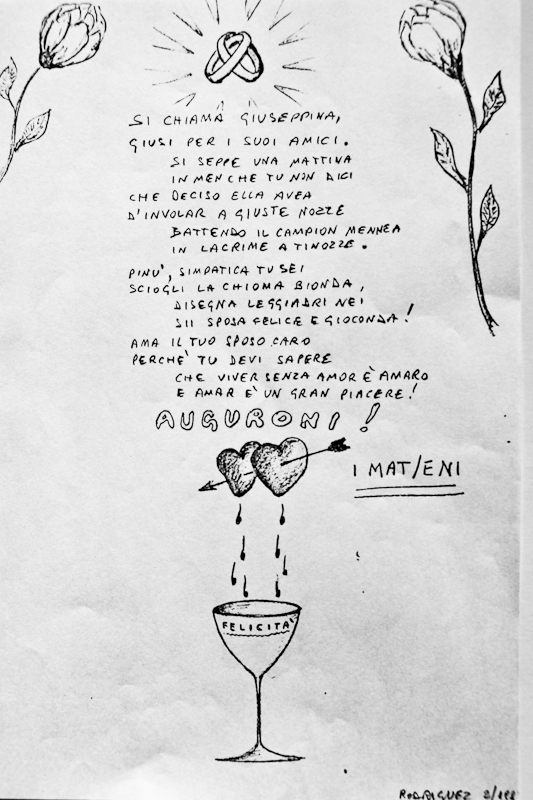 SI CHIAMA GIUSEPPINA,
GIUSI PER I SUOI AMICI.
SI SEPPE UNA MATTINA
IN MEN CHE TU NON DICI
CHE DECISO ELLA AVEA
D'INVOLAR A GIUSTE NOZZE
BATTENDO IL CAMPION MENNEA
IN LACRIME A TINOZZE.
PINU', SIMPATICA TU SEI
SCIOGLI LA CHIOMA BIONDA,
DISEGNA LEGGIADRI NEI
SII SPOSA FELICE E GIOCONDA!
AMA IL TUO SPOSO CARO
PERCHE' TU DEVI SAPERE
CHE VIVER SENZA AMOR È AMARO
E AMAR E' UN GRAN PIACERE!
AUGURONI!
I MAT/ENI
FELICITA'
RODRIGUEZ